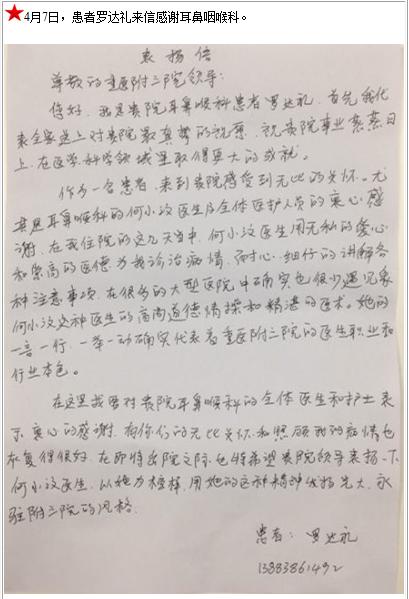 4月7日，患者罗达礼来信感谢耳鼻咽喉科。
表扬信
尊敬的重医附三院领导：
你好，我是贵院耳鼻喉科患者罗达礼，首先我代
表全家送上对贵院最真挚的祝愿，祝贵院事业蒸蒸日
上，在医学科学领域里取得更大的成就。
作为一名患者，来到贵院感受到无比的关怀。尤
其是耳鼻喉科的何小汶医生及全体医护人员的衷心感
谢，在我住院的这九天当中，何小汶医生用无私的爱心
和崇高的医德为我诊治病情，耐心、细仔的讲解各
种注意事项，在很多的大型医院中确实也很少遇见象
何小汶这种医生的高尚道德情操和精湛的医术。她的
一言一行，一举一动确实代表着重医附三院的医生职业和
行业本色。
在这里我要对贵院耳鼻喉科的全体医生和护士表
示衷心的感谢，有你们的无比关怀和照顾我的病情也
恢复得很好，在即将出院之际，也特希望贵院领导表扬一下
何小汶医生，以她为榜样，用她的这种精神发扬光大，永
驻附三院的风格。
患者：罗达礼